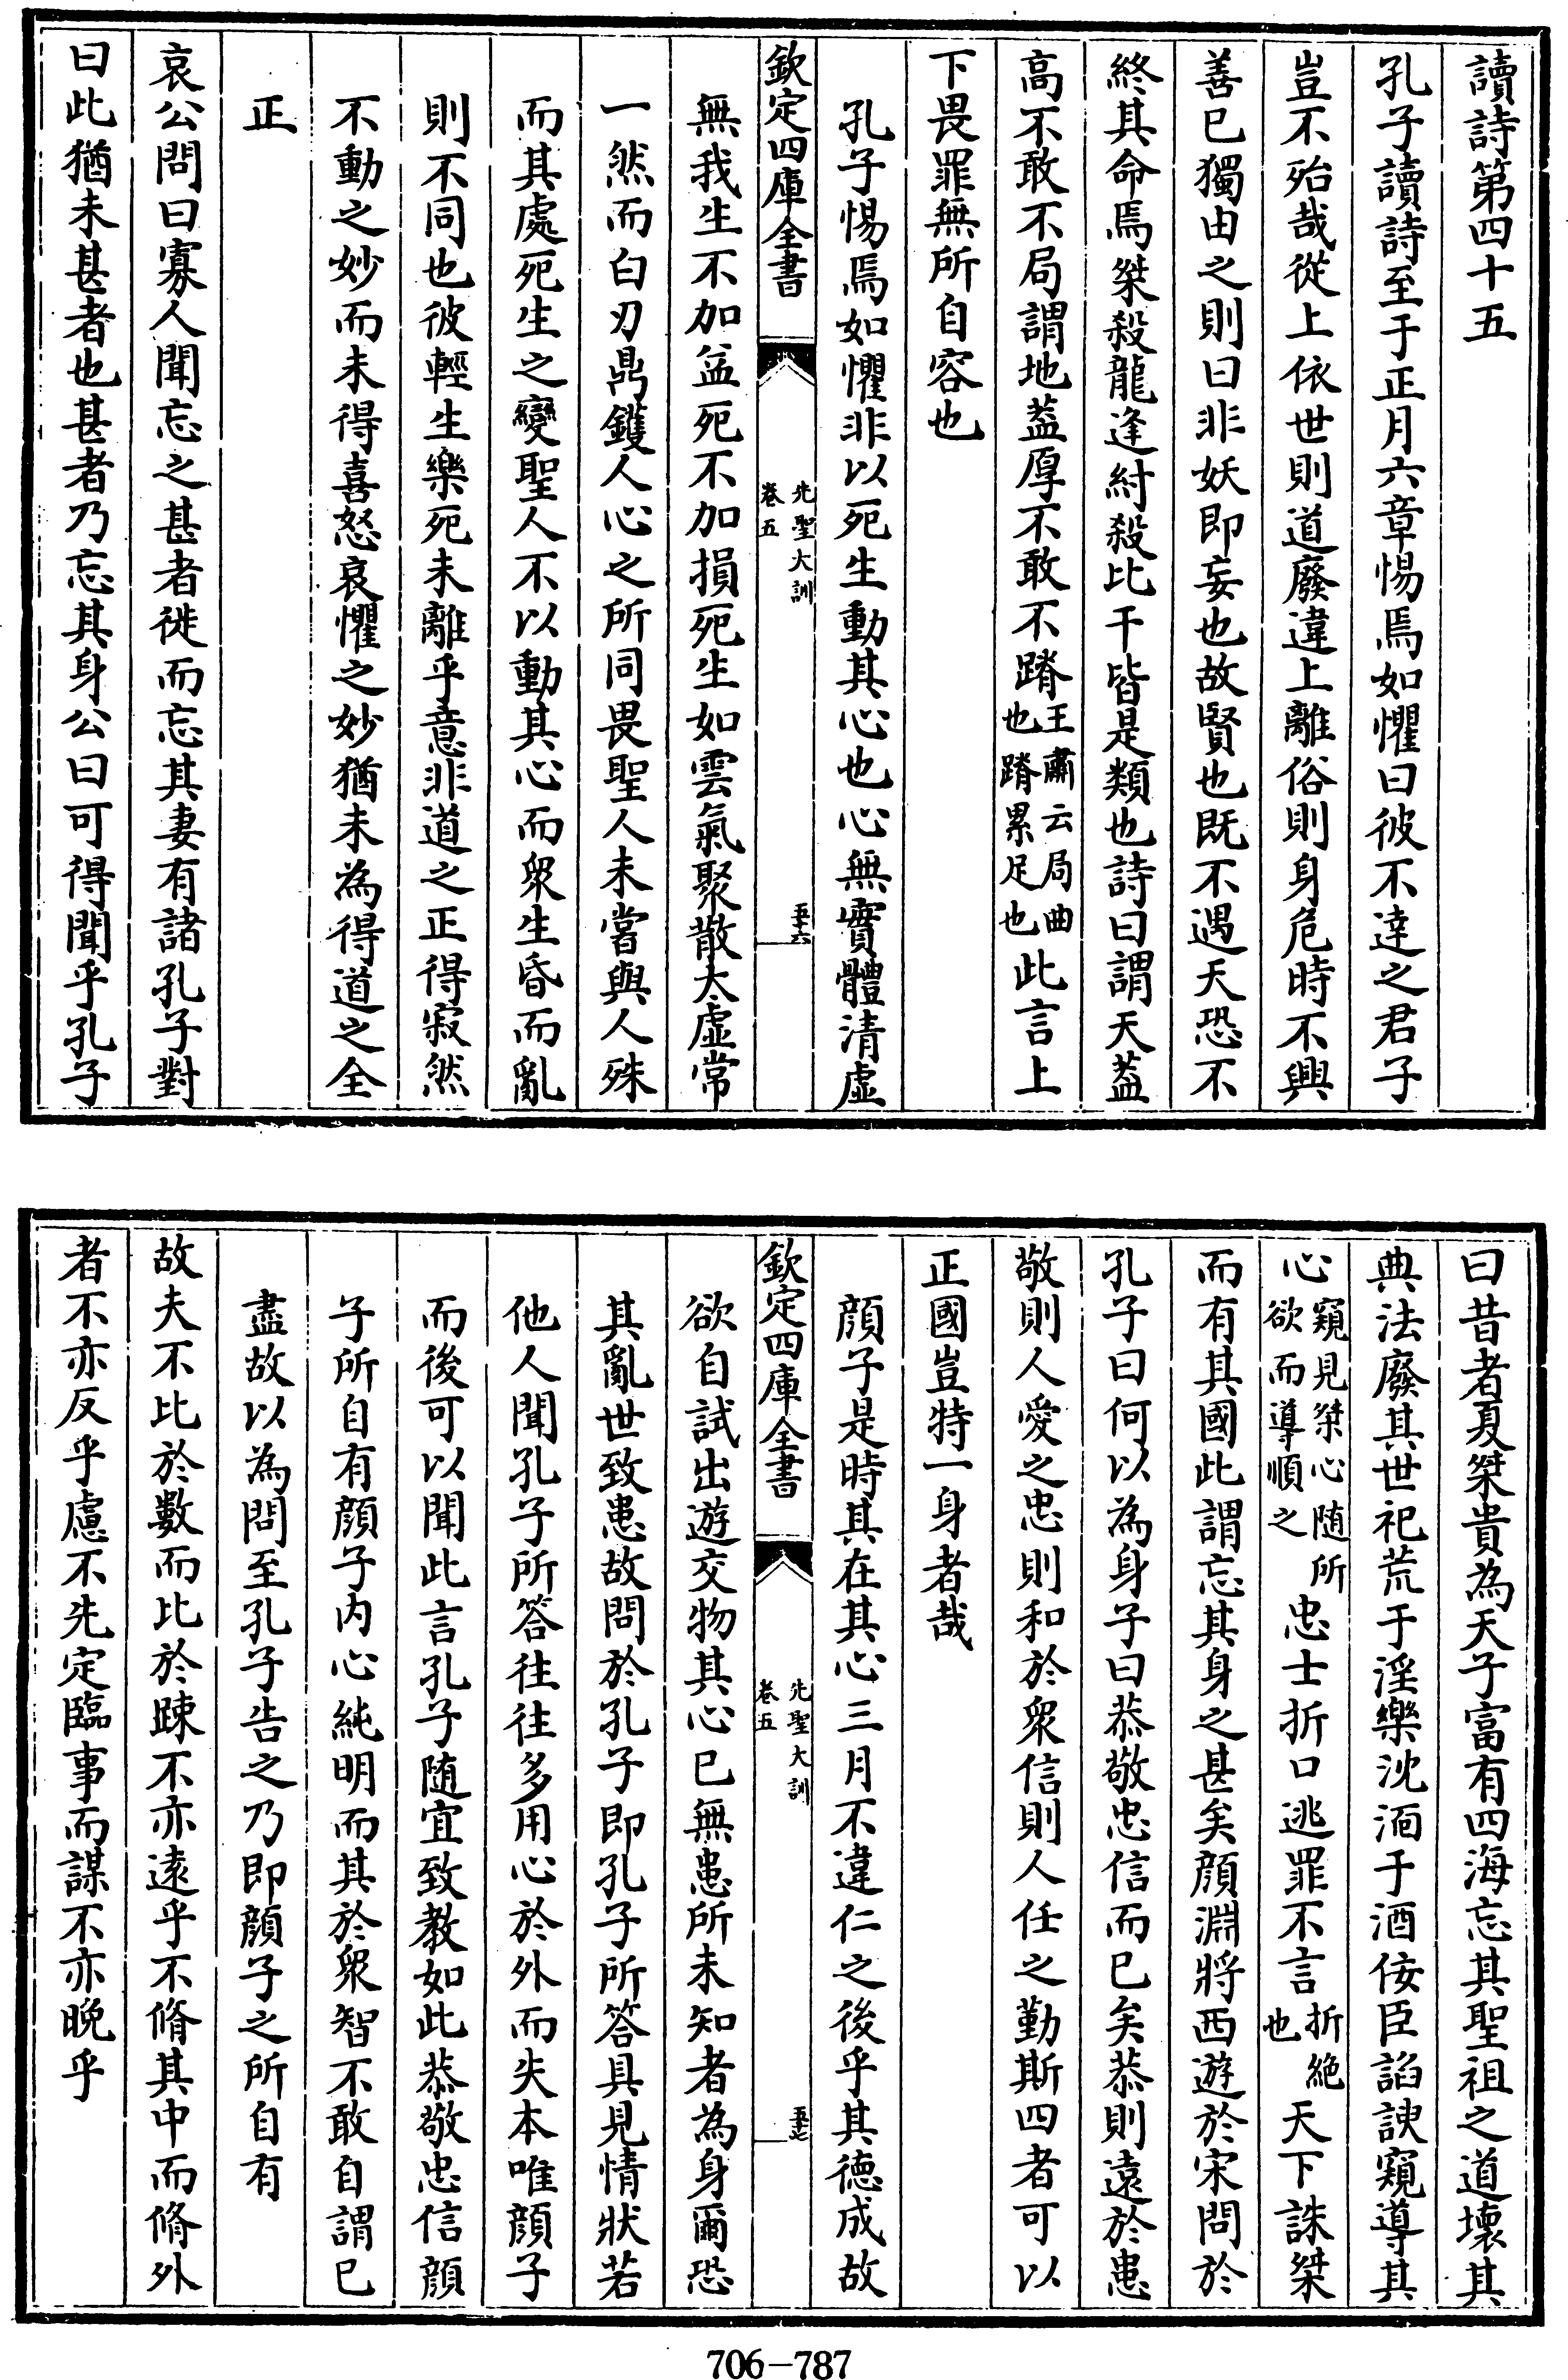 讀詩第四十五
孔子讀詩至于正月六章惕焉如懼曰彼不達之君子
豈不殆哉從上依世則道廢違上離俗則身危時不興
善已獨由之則曰非妖即妄也故賢也既不遇天恐不
終其命焉桀殺龍逢紂殺比干皆是類也詩曰謂天蓋
高不敢不局謂地蓋厚不敢不蹐王肅云局曲也蹐累足也此言上
下畏罪無所自容也
孔子惕焉如懼非以死生動其心也心無實體清虛
欽定四庫全書 先聖大訓 卷五 五十六
無我生不加益死不加損死生如雲氣聚散太虛常
一然而白刃鼎鑊人心之所同畏聖人未嘗與人殊
而其處死生之變聖人不以動其心而衆生昏而亂
則不同也彼輕生樂死未離乎意非道之正得寂然
不動之妙而未得喜怒哀懼之妙猶未為得道之全
正
哀公問曰寡人聞忘之甚者徙而忘其妻有諸孔子對
曰此猶未甚者也甚者乃忘其身公曰可得聞乎孔子
曰昔者夏桀貴為天子富有四海忘其聖祖之道壞其
典法廢其世祀荒于淫樂沈湎于酒佞臣諂諛窺導其
心窺見桀心随所欲而導順之忠士折口逃罪不言折絶也天下誅桀
而有其國此謂忘其身之甚矣顏淵將西遊於宋問於
孔子曰何以為身子曰恭敬忠信而已矣恭則遠於患
敬則人愛之忠則和於衆信則人任之勤斯四者可以
正國豈特一身者哉
顏子是時其在其心三月不違仁之後乎其德成故
欽定四庫全書 先聖大訓 卷五 五十七
欲自試出遊交物其心已無患所未知者為身爾恐
其亂世致患故問於孔子即孔子所答具見情狀若
他人聞孔子所答往往多用心於外而失本唯顏子
而後可以聞此言孔子随宜致教如此恭敬忠信顏
子所自有顏子内心純明而其於衆智不敢自謂已
盡故以為問至孔子告之乃即顏子之所自有
故夫不比於數而比於踈不亦遠乎不脩其中而脩外
者不亦反乎慮不先定臨事而謀不亦晚乎
706-787